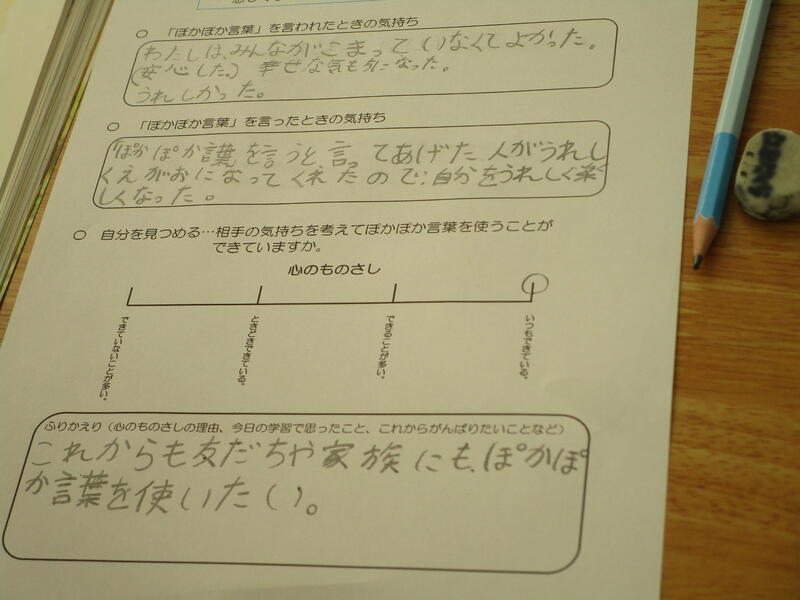 ○ 「ぽかぽか言葉」を言われたときの気持ち
わたしは、みんながこまっていなくてよかった。
(安心した。) 幸せな気もちになった。
うれしかった。
○ 「ぽかぽか言葉」を言ったときの気持ち
「ぽかぽか言葉」を言うと、言ってあげた人がうれし
くえがおになってくれたので、自分をうれしく楽
しくなった。
○ 自分を見つめる…相手の気持ちを考えてぽかぽか言葉を使うことが
できていますか。
心のものさし
できていないことが多い。
ときどきできている。
できることが多い。
いつもできている。
ふりかえり(心のものさしの理由、今日の学習で思ったこと、これからがんばりたいことなど)
これからも友だちや家族にも、ぽかぽ
か言葉を使いたい。